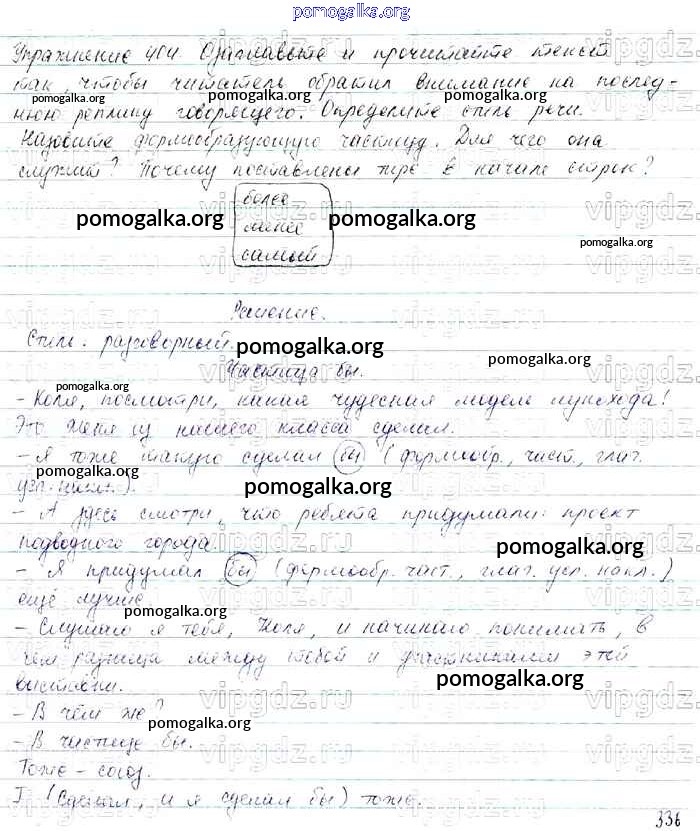 pomogalka.org
Упражнение 404. Озаглавьте и прочитайте текст
так, чтобы читатель обратил внимание на послед-
pomogalka.org pomogalka.org pomogalka.org
нюю реплику говорящего. Определите стиль речи.
Назовите формообразующую частицу. Для чего она
служит? Почему поставлены тире в начале строк?
более
pomogalka.org pomogalka.org
менее
pomogalka.org
самый
Решение.
Стиль: разговорный.
pomogalka.org
pomogalka.org
Частица бы.
pomogalka.org
- Коля, посмотри, какая чудесная модель лунохода!
Это Женя из нашего класса сделал.
- Я тоже такую сделал бы (формообр. част., глаг.
усл. накл.).
pomogalka.org
- А здесь смотри, что ребята придумали: проект
подводного города.
pomogalka.org
- Я придумал бы (формообр. част., глаг. усл. накл.)
ещё лучше.
pomogalka.org
- Слушаю я тебя, Коля, и начинаю понимать, в
чём разница между тобой и участниками этой
выставки.
pomogalka.org
- В чём же?
pomogalka.org
- В частице бы.
Тоже - союз.
(Сделал, и я сделал бы) тоже.
336